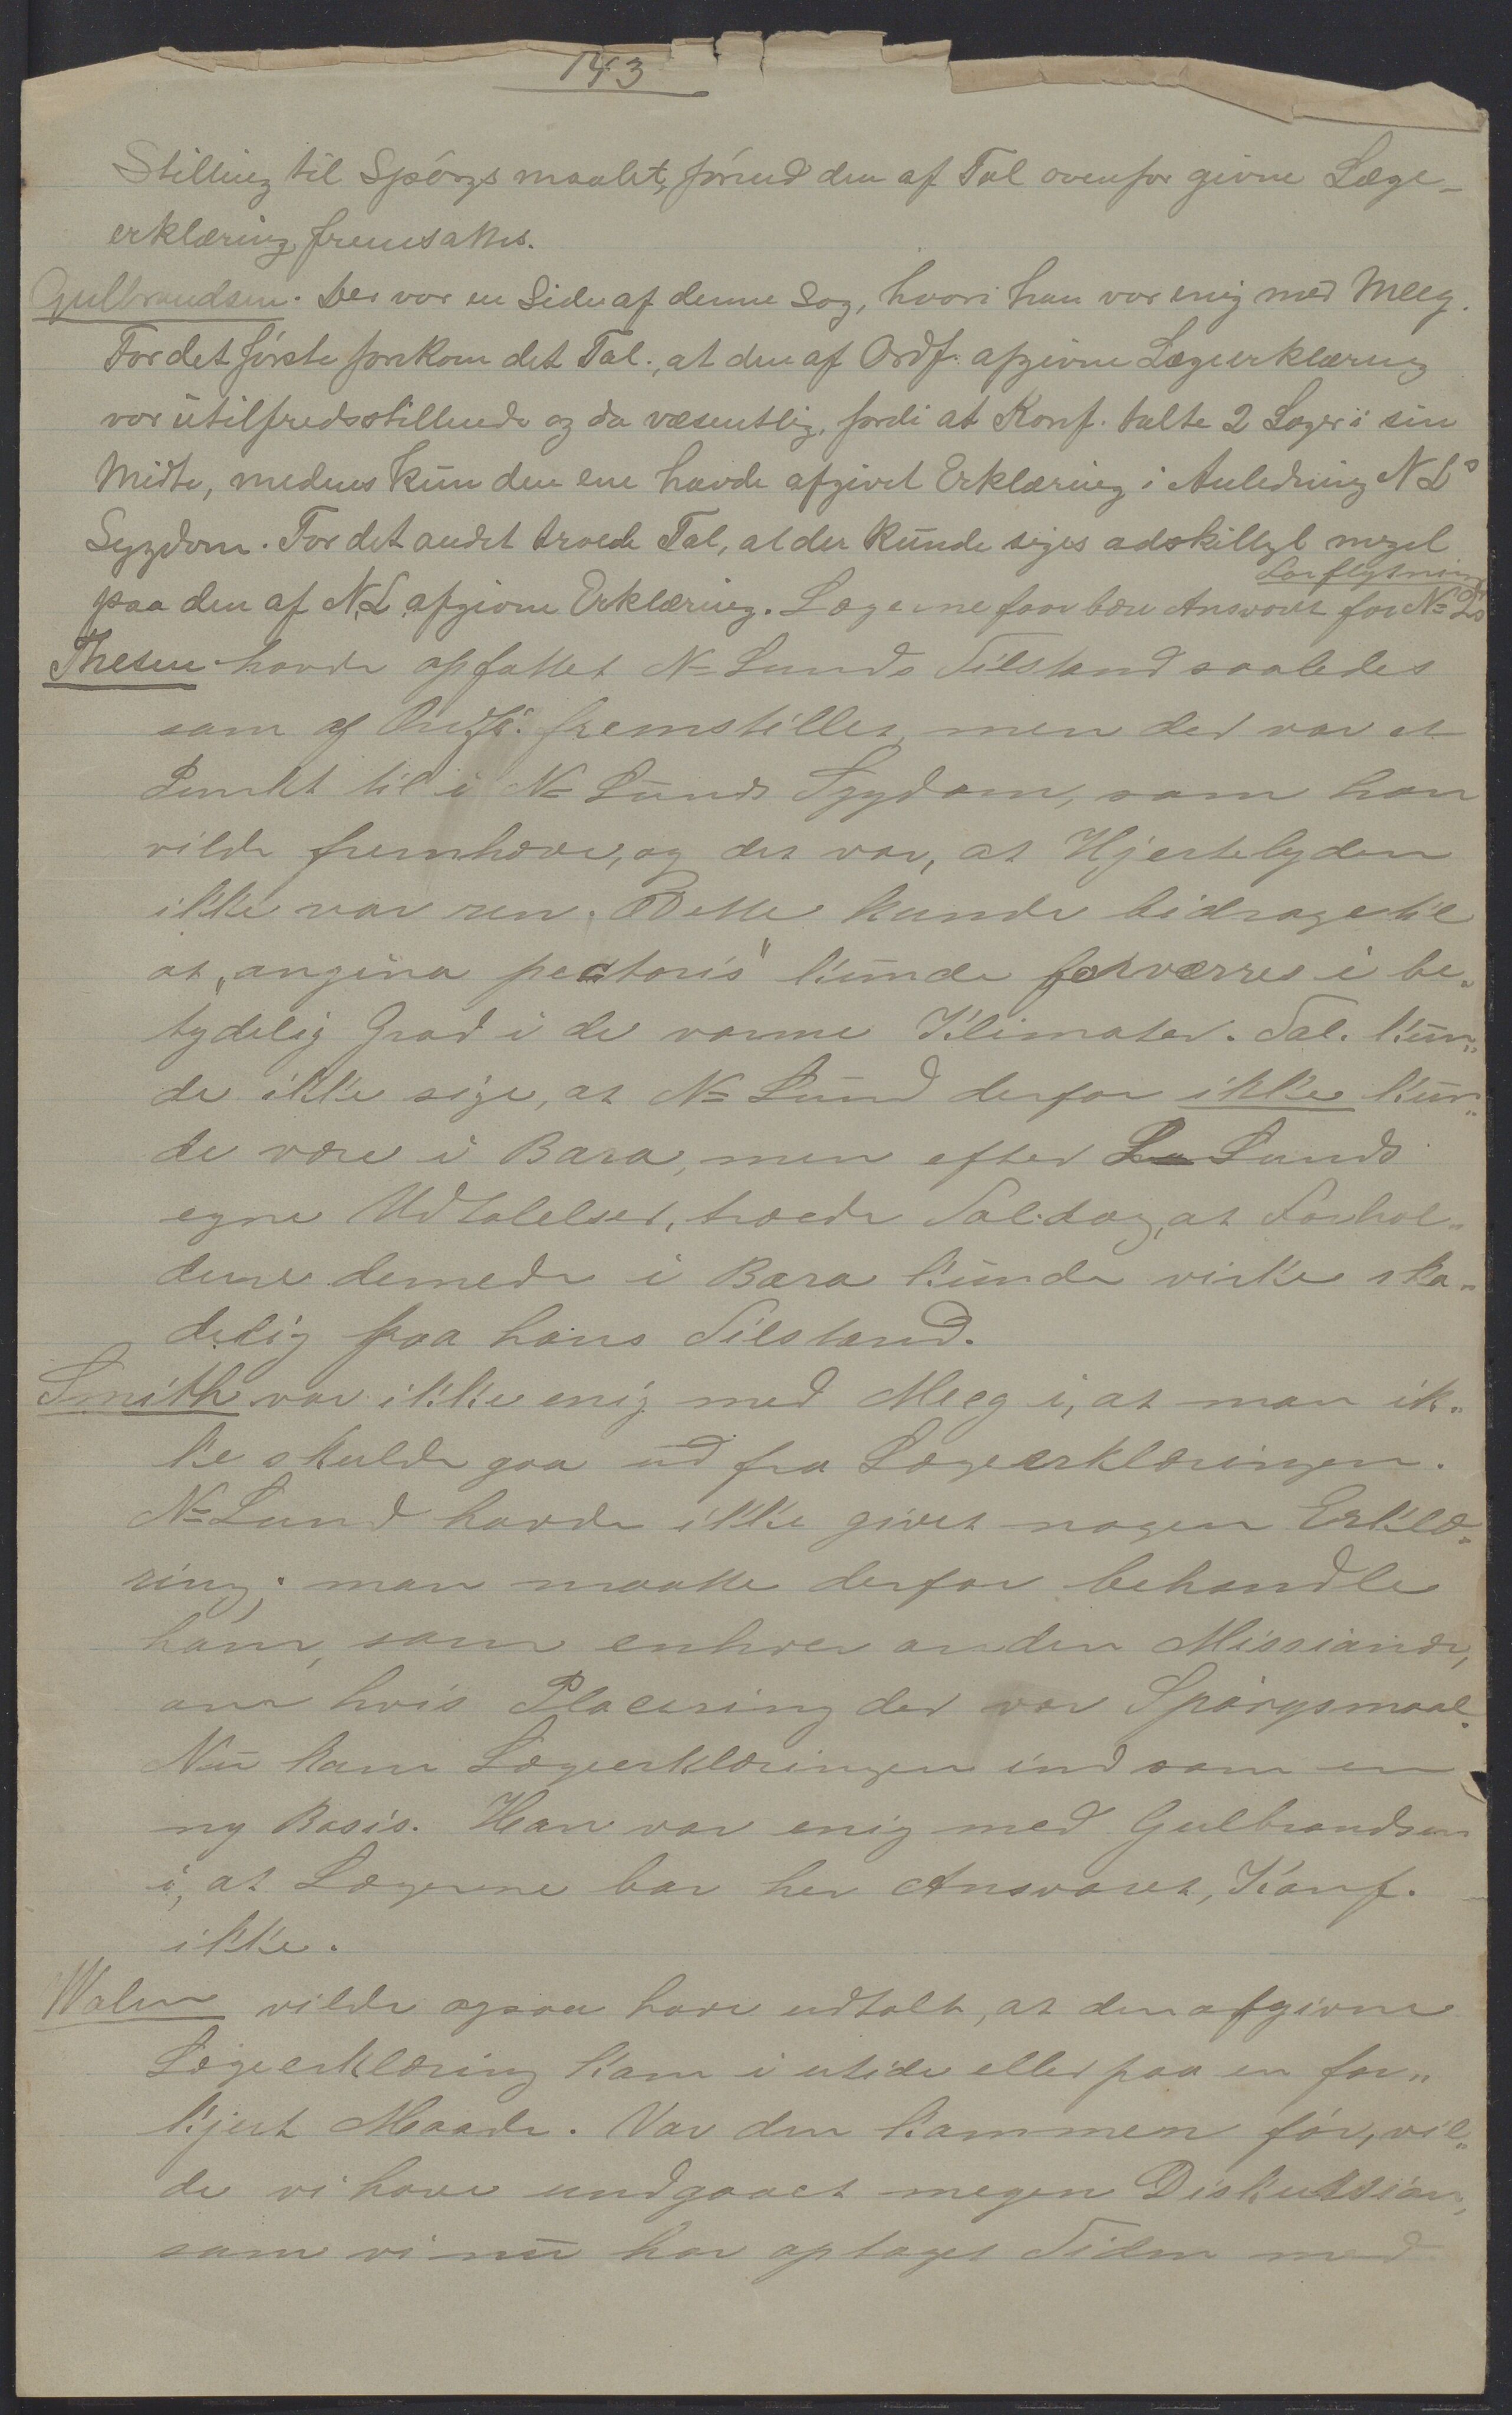 143
Stilling til Spörgsmaalet, förend den af Tal ovenfor givne Læge-
erklæring fremsattes.
Gulbrandsen. Der var en Side af denne Sag, hvori han var enig med Meeg.
For det förste forekom det Tal., at den af Ordf. afgivne Lægeerklæring
var utilfredsstillende og da væsentlig, fordi at Konf. talte 2 Læger i sin
Midte, medens kun den ene havde afgivet Erklæring i Anledning N Ls
Sygdom. For det andet troede Tal, at der kunde siges adskilligt meget
Forflytning
paa den af N. L. afgivne Erklæring. Lægerne faar bære Ansvaret for N= Ls
Thesen havde opfattet N= Lunds Tilstand saaledes
som af Ordf. fremstillet, men der var et
Punkt til i N= Lunds Sygdom, som han
vilde fremhæve, og det var, at Hjertelyden
ikke var ren. Dette kunde bidrage til
at „angina pectoris" kunde forværres i be„
tydelig Grad i de varme Klimater. Tal. kun„
de ikke sige, at N= Lund derfor ikke kun„
de være i Bara, men efter Lu Lunds
egne Udtalelser, troede Tal. dog, at Forhol„
dene dernede i Bara kunde virke ska„
delig paa hans Tilstand.
Smith var ikke enig med Meeg i, at man ik„
ke skulde gaa ud fra Lægeerklæringen.
N= Lund havde ikke givet nogen Erklæ„
ring; man maatte derfor behandle
ham, som enhver anden Missionær,
om hvis Placering der var Spörgsmaal.
Nu kom Lægeerklæringen ind som en
ny Basis. Han var enig med Gulbrandsen
i, at Lægerne bar her Ansvaret, Konf.
ikke.
Walen vilde ogsaa have udtalt, at den afgivne
Lægeerklæring kom i utide eller paa en for„
kjert Maade. Var den kommen för, vil„
de vi have undgaaet megen Diskussion,
som vi nu har optaget Tiden med